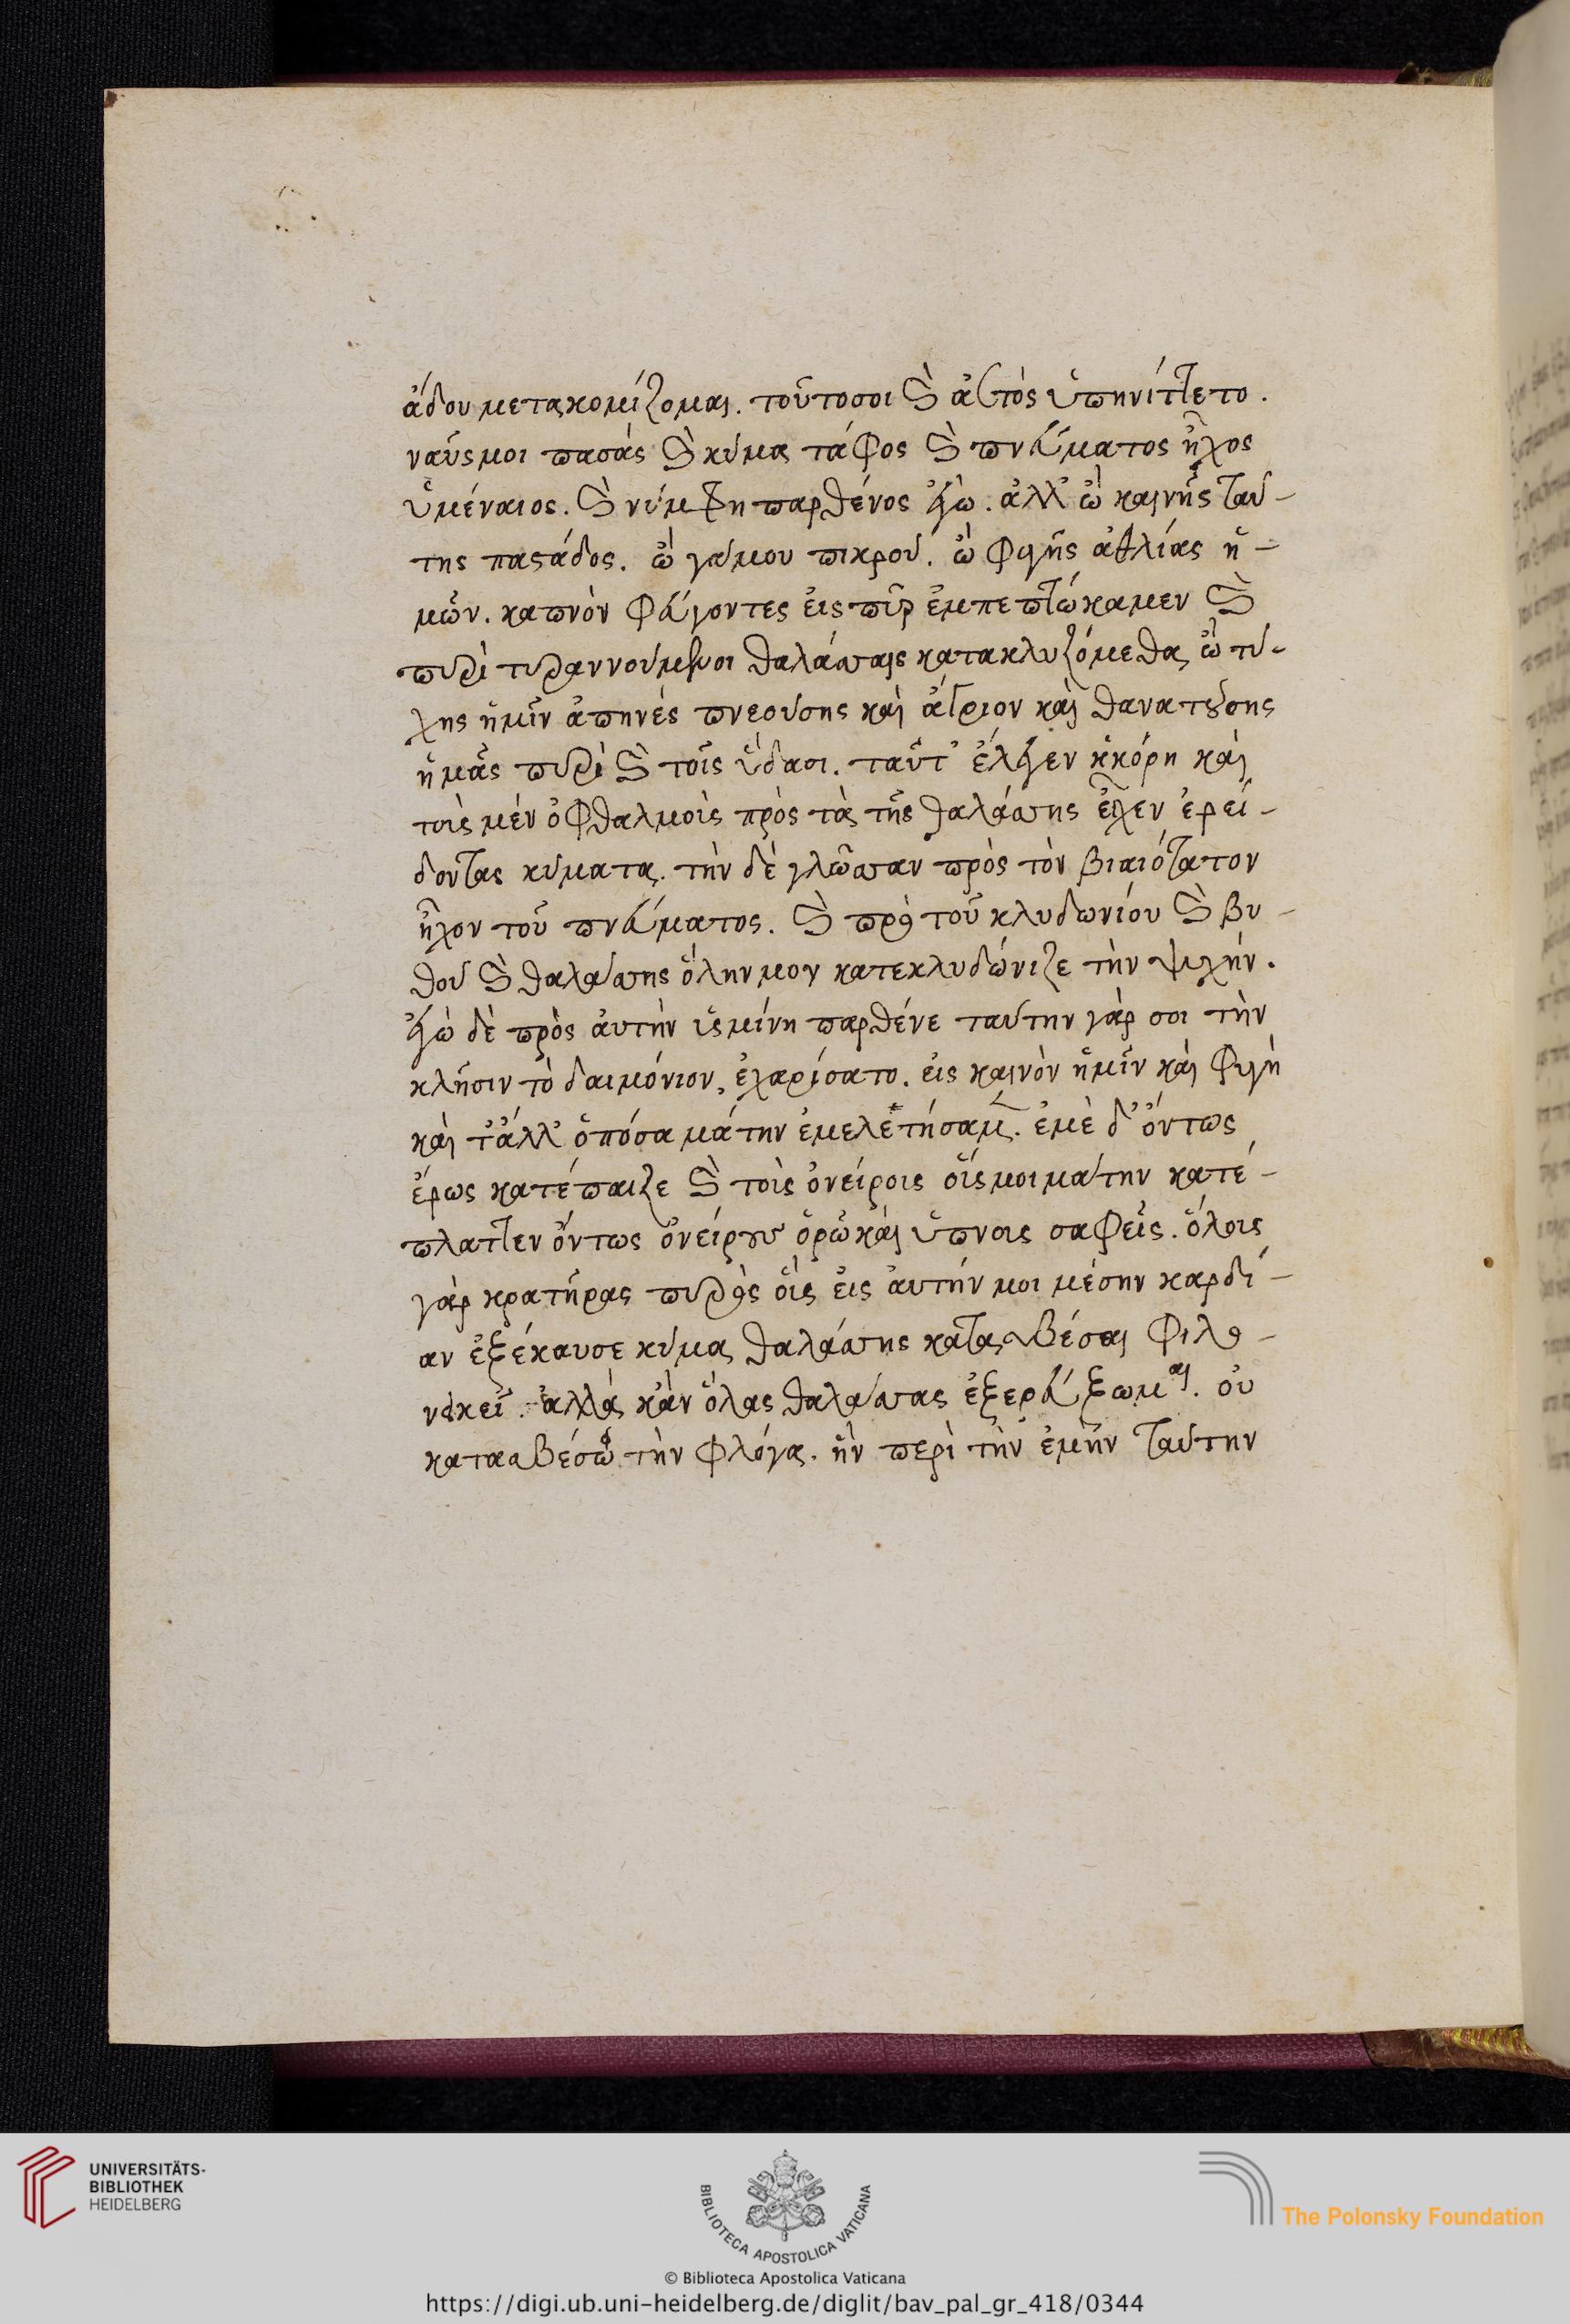 ἅδου μετακομίζομαι. τοῦτο σοι καὶ ἀετὸς ὑπηνίττετο.
ναῦς μοι παστὰς καὶ κῦμα τάφος καὶ πνεύματος ἦχος
ὑμέναιος. καὶ νύμφη παρθένος ἐγὼ. ἀλλ' ὢ καινῆς ταύ-
της παστάδος. ὢ γάμου πικροῦ. ὢ φυγῆς ἀθλίας ἡ-
μῶν. καπνὸν φεύγοντες εἰς πῦρ ἐμπεπτώκαμεν καὶ
πυρὶ τυραννούμενοι θαλάτταις κατακλυζόμεθα, ὢ τύ-
χης ἡμῖν ἀπηνὲς πνεούσης καὶ ἄγριον καὶ θανατούσης
ἡμᾶς πυρὶ καὶ τοῖς ὕδασι. ταῦτ' ἔλεγεν ἡ κόρη καὶ
τοὺς μὲν ὀφθαλμοὺς πρὸς τὰ τῆς θαλάττης εἶχεν ἐρεί-
δοντας κύματα. τὴν δὲ γλῶτταν πρὸς τὸν βιαιότατον
ἦχον τοῦ πνεύματος. καὶ πρὸ τοῦ κλυδωνίου καὶ βυ-
θοῦ καὶ θαλάττης ὅλην μου κατεκλυδώνιζε τὴν ψυχήν.
ἐγὼ δὲ πρὸς αὐτὴν ὑσμίνη παρθένε ταύτην γάρ σοι τὴν
κλῆσιν τὸ δαιμόνιον, ἐχαρίσατο. εἰς καινὸν ἡμῖν καὶ φυγὴ
καὶ τἄλλ' ὁπόσα μάτην ἐμελετήσαμεν. ἐμὲ δ' ὄντως
ἔρως κατέπαιζε καὶ τοῖς ὀνείροις οἷς μοι μάτην κατέ-
πλαττεν ὄντως ὀνείρους ὁρῶ καὶ ὕπνοις σαφεῖς. ὅλους
γὰρ κρατῆρας πυρὸς οἷς εἰς αὐτήν μοι μέσην καρδί-
αν ἐξέκαυσε κῦμα θαλάττης κατασβέσαι φιλο-
νεικεῖ. ἀλλὰ κἂν ὅλας θαλάττας ἐξερεύξωμαι. οὐ
κατασβέσω τὴν φλόγα. ἣν περὶ τὴν ἐμὴν ταύτην
UNIVERSITÄTS-
BIBLIOTHEK
HEIDELBERG
BIBLIOTECA APOSTOLICA VATICANA
The Polonsky Foundation
© Biblioteca Apostolica Vaticana
https://digi.ub.uni-heidelberg.de/diglit/bav_pal_gr_418/0344